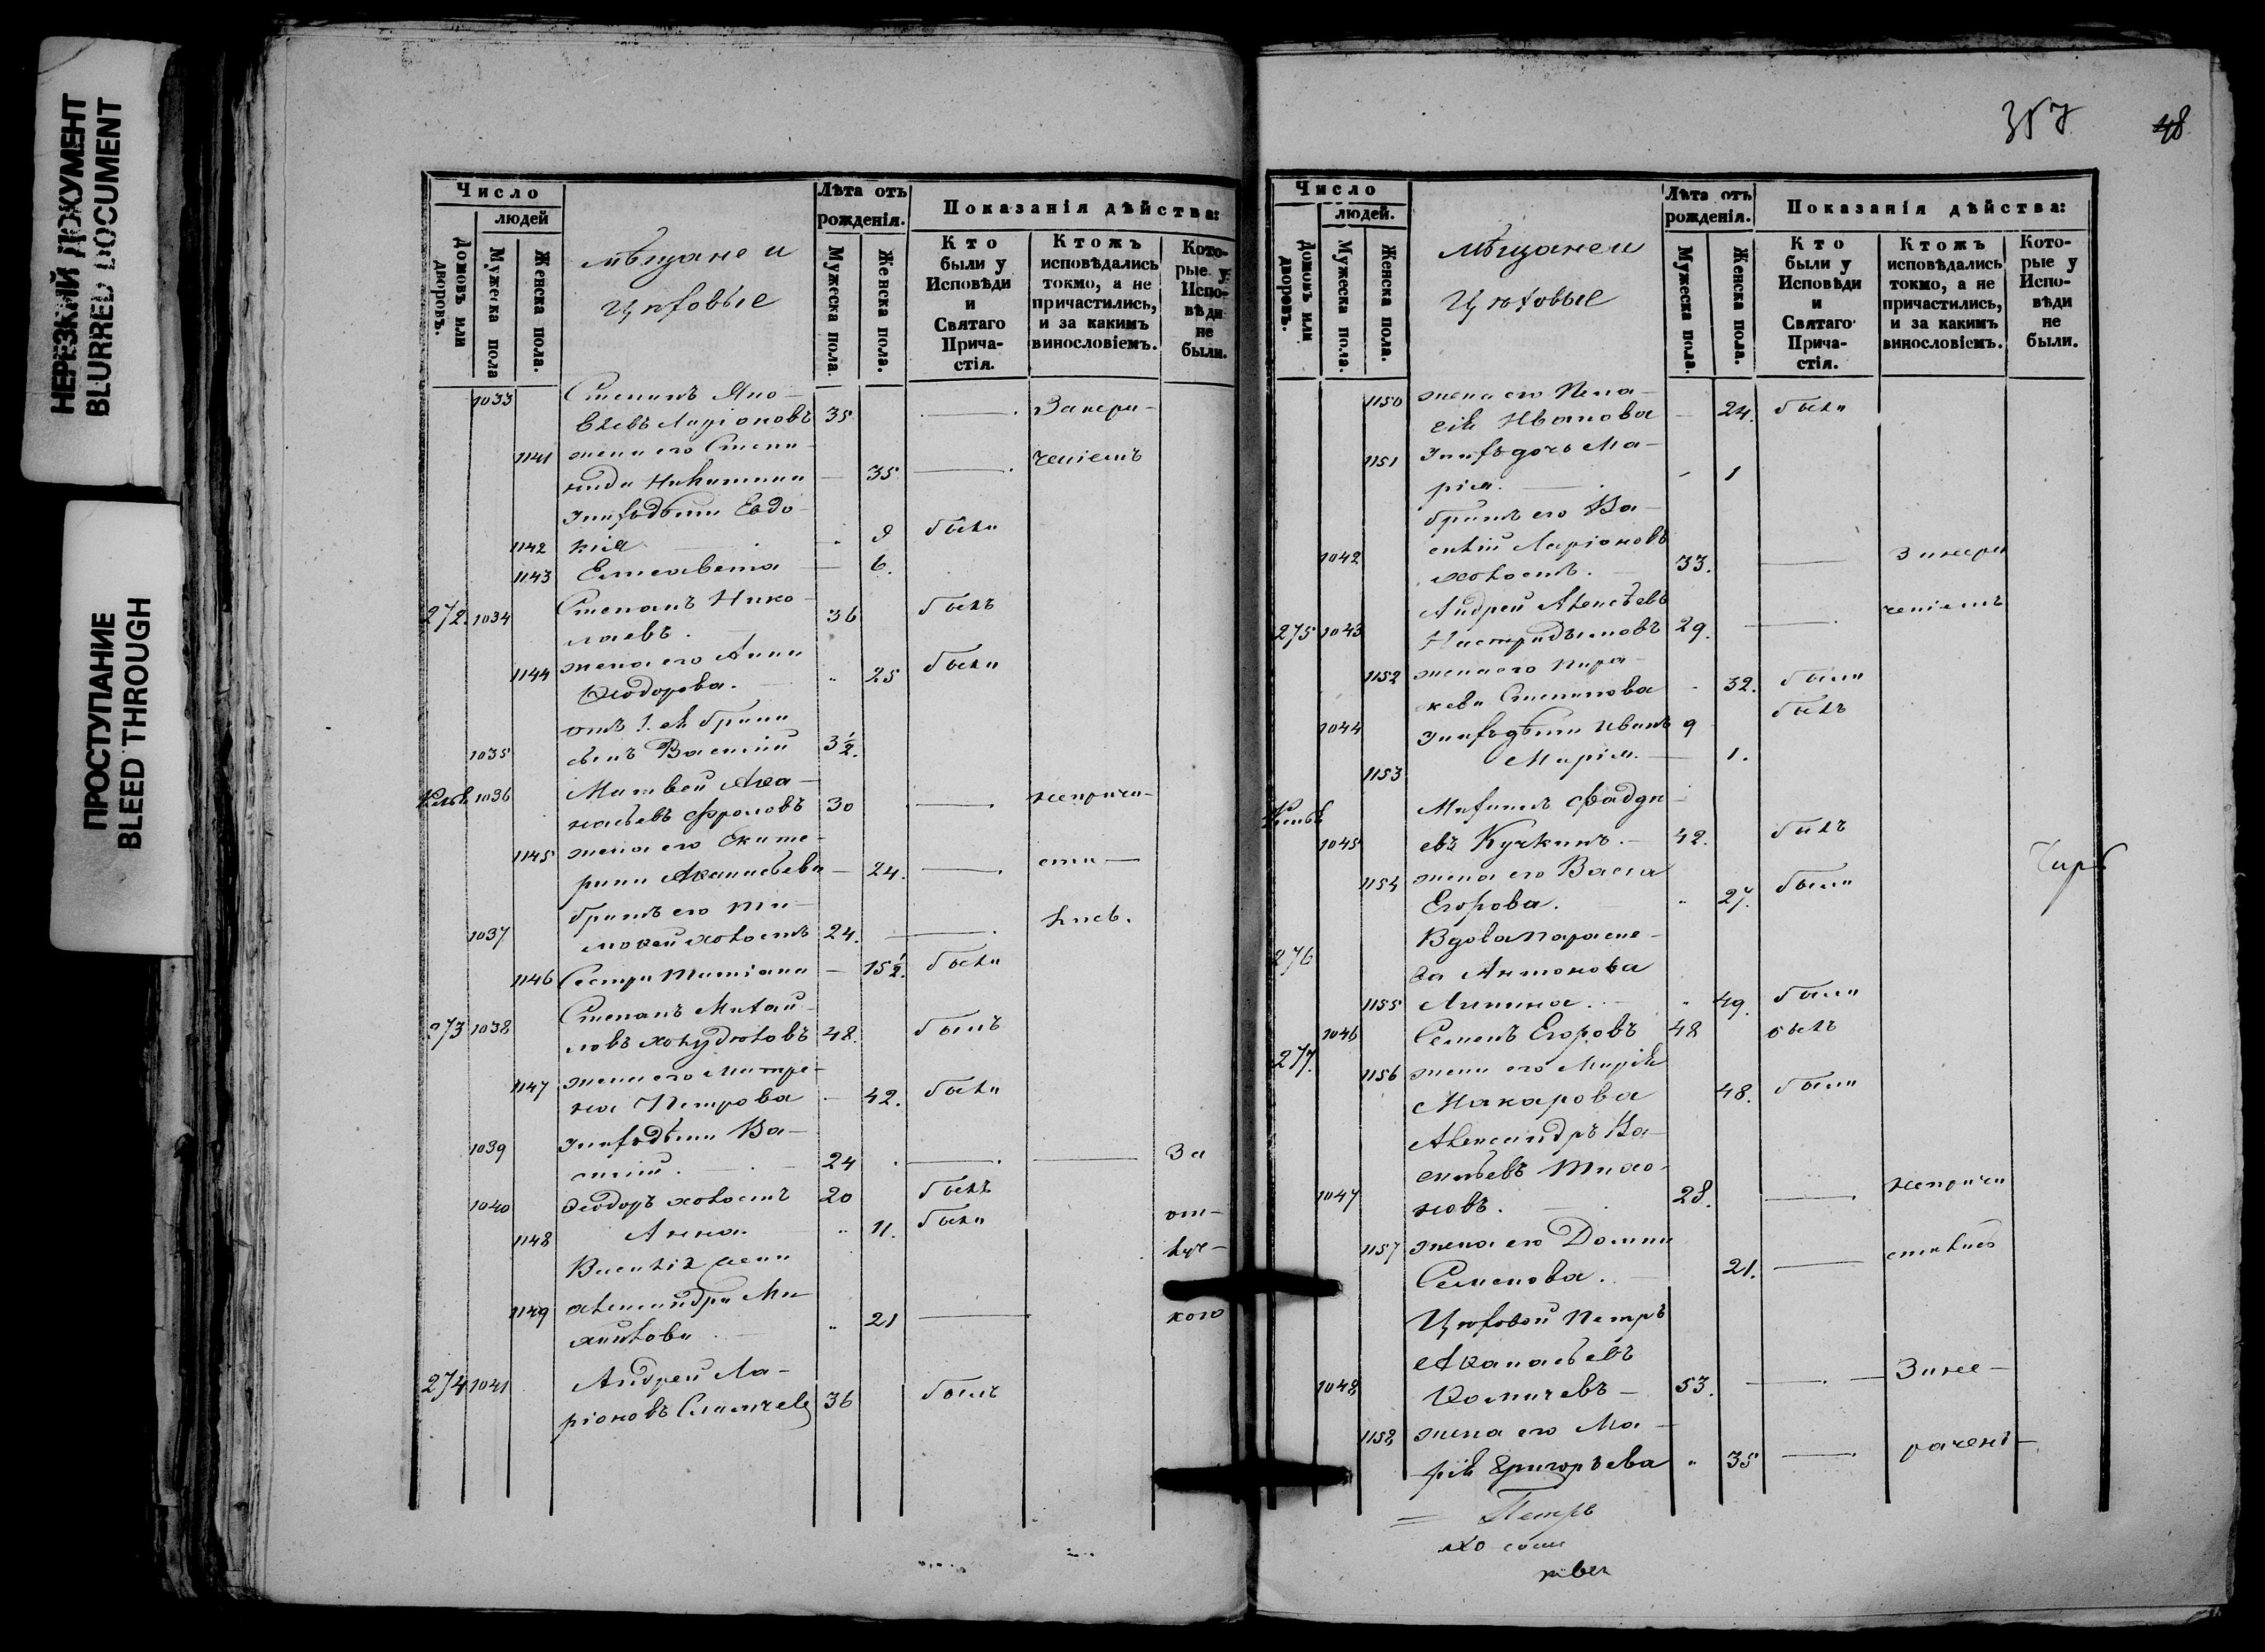 НЕРЕЗКИЙ ДОКУМЕНТ
BLURRED DOCUMENT
ПРОСТУПАНИЕ
BLEED THROUGH
Число
людей
Домовъ или дворовъ.
Мужеска пола
Женска пола.
мѣщане и
цѣховые
Лѣта отъ
рожденія.
Мужеска пола.
Женска пола.
Показанія дѣйства:
Кто
были у
Исповѣди
и
Святаго
Прича-
стія.
Ктожъ
исповѣдались
токмо, а не
причастились,
и за какимъ
винословіемъ.
Кото-
рые у
Испо-
вѣди
не
были.
1033 Степанъ Яко-
влевъ Ларіоновъ 35 Занере-
1141 жена его Степа-
нида Никитина 35 ченіемъ
Ихъ дѣти Евдо-
1142 кія 9 была
1143 Елисавета 6.
272. 1034 Степанъ Нико-
лаевъ. 36 былъ
1144 жена его Анна
Ѳеодорова. 25 была
1035 сынъ Василій 3½.
1036 Матвей Аѳа-
насьевъ Фроловъ 30 неприча-
1145 жена его Екате-
рина Аѳанасьева 24. сти-
братъ его Ти-
1037 моѳей холостъ 24. лись.
1146 Сестра Татіана 15½. была
273 1038 Степанъ Михай-
ловъ 48. былъ
1147 жена его Матре-
на Петрова 42. была
1039 Ихъ дѣти Ва-
силій. 24 За
1040 Ѳеодоръ холостъ 20 былъ
1148 Анна. 11. была от-
Василія жена луч-
1149 Александра Ми-
хайлова 21 кою
274 1041 Андрей Ла-
ріоновъ 36 былъ
357
48
Число
людей.
Домовъ или дворовъ.
Мужеска пола.
Женска пола.
мѣщане и
цѣховые
Лѣта отъ
рожденія.
Мужеска пола.
Женска пола.
Показанія дѣйства:
Кто
были у
Исповѣди
и
Святаго
Прича-
стія.
Ктожъ
исповѣдались
токмо, а не
причастились,
и за какимъ
винословіемъ.
Кото-
рые у
Испо-
вѣди
не
были.
1150 жена его Пела-
гія Иванова 24. была
1151 Ихъ дочь Ма-
рія. 1
братъ его Ва-
1042 силій Ларіоновъ
холостъ. 33. Занере
Андрей Алексѣевъ
275 1043 29. ченіемъ
1152 жена его Пара-
скева Степанова 32. была
1044 Ихъ дѣти Иванъ 9 былъ
1153 Марія. 1.
Михаилъ Фадде-
1045 евъ Кучкинъ. 42. былъ
1154 жена его Васса
Егорова. 27. была
276 Вдова Параске-
ва Антонова
1155 Липина. 49. была
1046 Семенъ Егоровъ 48 былъ
277. 1156 жена его Марія
Макарова 48. была
Александръ Ва-
сильевъ Тихо-
1047 новъ. 28. неприча
1157 жена его Домна
Семенова. 21. стились
Цѣховой Петръ
Аѳанасьевъ
1048 53. Зане-
1158 жена его Ма-
рія Григорьева 35
Петръ